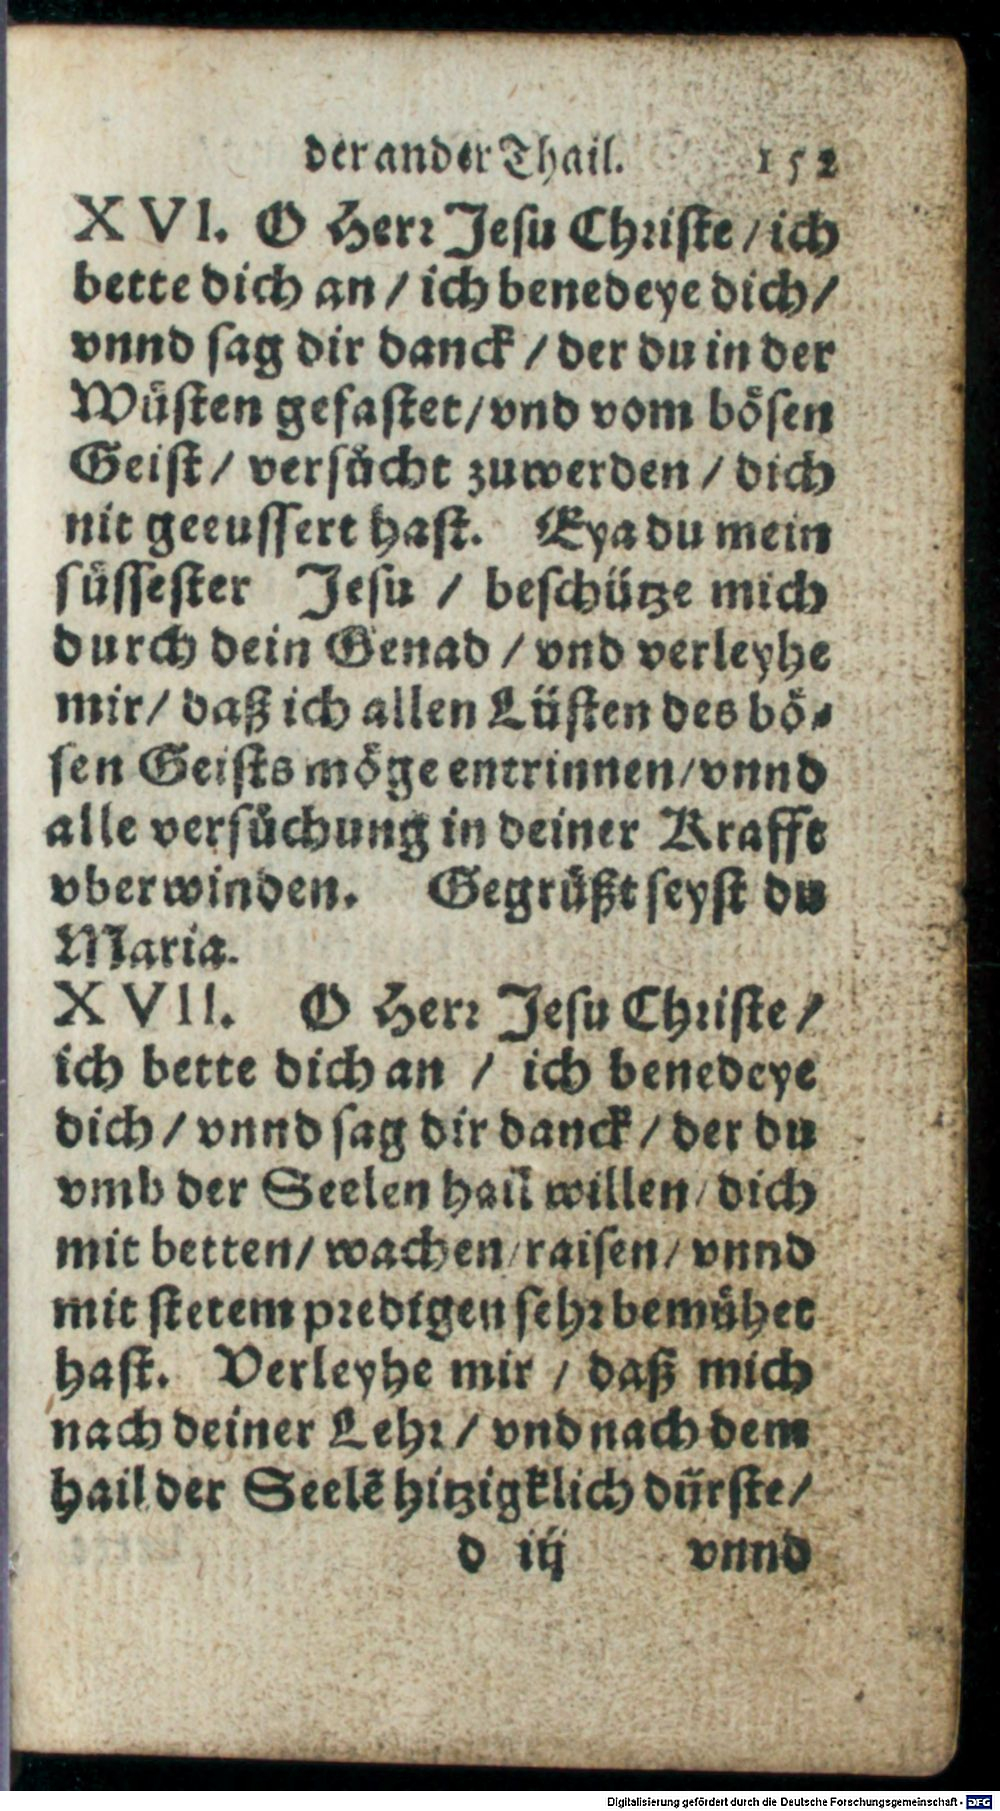 der ander Thail. 152
XVI. O Herr Jesu Christe / ich
bette dich an / ich benedeye dich /
vnnd sag dir danck / der du in der
Wüsten gefastet / vnd vom bösen
Geist / versücht zuwerden / dich
nit geeussert hast. Eya du mein
süssester Jesu / beschütze mich
durch dein Genad / vnd verleyhe
mir / daß ich allen Lüsten des bö-
sen Geists möge entrinnen / vnnd
alle versüchung in deiner Krafft
vberwinden. Gegrüßt seyst du
Maria.
XVII. O Herr Jesu Christe /
ich bette dich an / ich benedeye
dich / vnnd sag dir danck / der du
vmb der Seelen hail willen / dich
mit betten / wachen / raisen / vnnd
mit stetem predigen sehr bemühet
hast. Verleyhe mir / daß mich
nach deiner Lehr / vnd nach dem
hail der Seelē hitzigklich dürste /
d iij vnnd
Digitalisierung gefördert durch die Deutsche Forschungsgemeinschaft - DFG